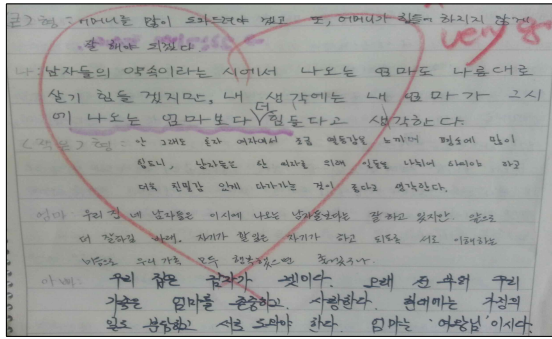 큰) 형 : 어머니를 많이 도와드려야 겠고 또, 어머니가 힘들어 하지지 않게
잘 해야 되겠다. very
나: 남자들의 약속이라는 시에서 나오는 엄마도 나름대로
살기 힘들겠지만, 내 생각에는 내 엄마가 그시
에 나오는 엄마보다 더 힘들다고 생각한다.
<작은> 형 : 안 그래도 혼자 여자여서 조금 열등감을 느끼며 평소에 많이
힘드니, 남자들은 한 여자를 위해 일들을 나눠어 하여야 하고
더욱 친밀감 있게 다가가는 것이 좋다고 생각한다.
엄마 우리 집 네 남자들은 이시에 나오는 남자들보다는 잘 하고 있지만 앞으로
더 잘하길 바래. 자기가 할일은 자기가 하고 되도록 서로 이해하는
마음으로 우리 가족 모두 행복했으면 좋겠구나.
아빠: 우리 집은 남자가 넷이다. 오래 전부터 우리
가족은 엄마를 존중하고, 사랑한다. 현여빠는 가정의
일도 분담하고 서로 도와야 한다. 엄마는 '여왕님'이시다.